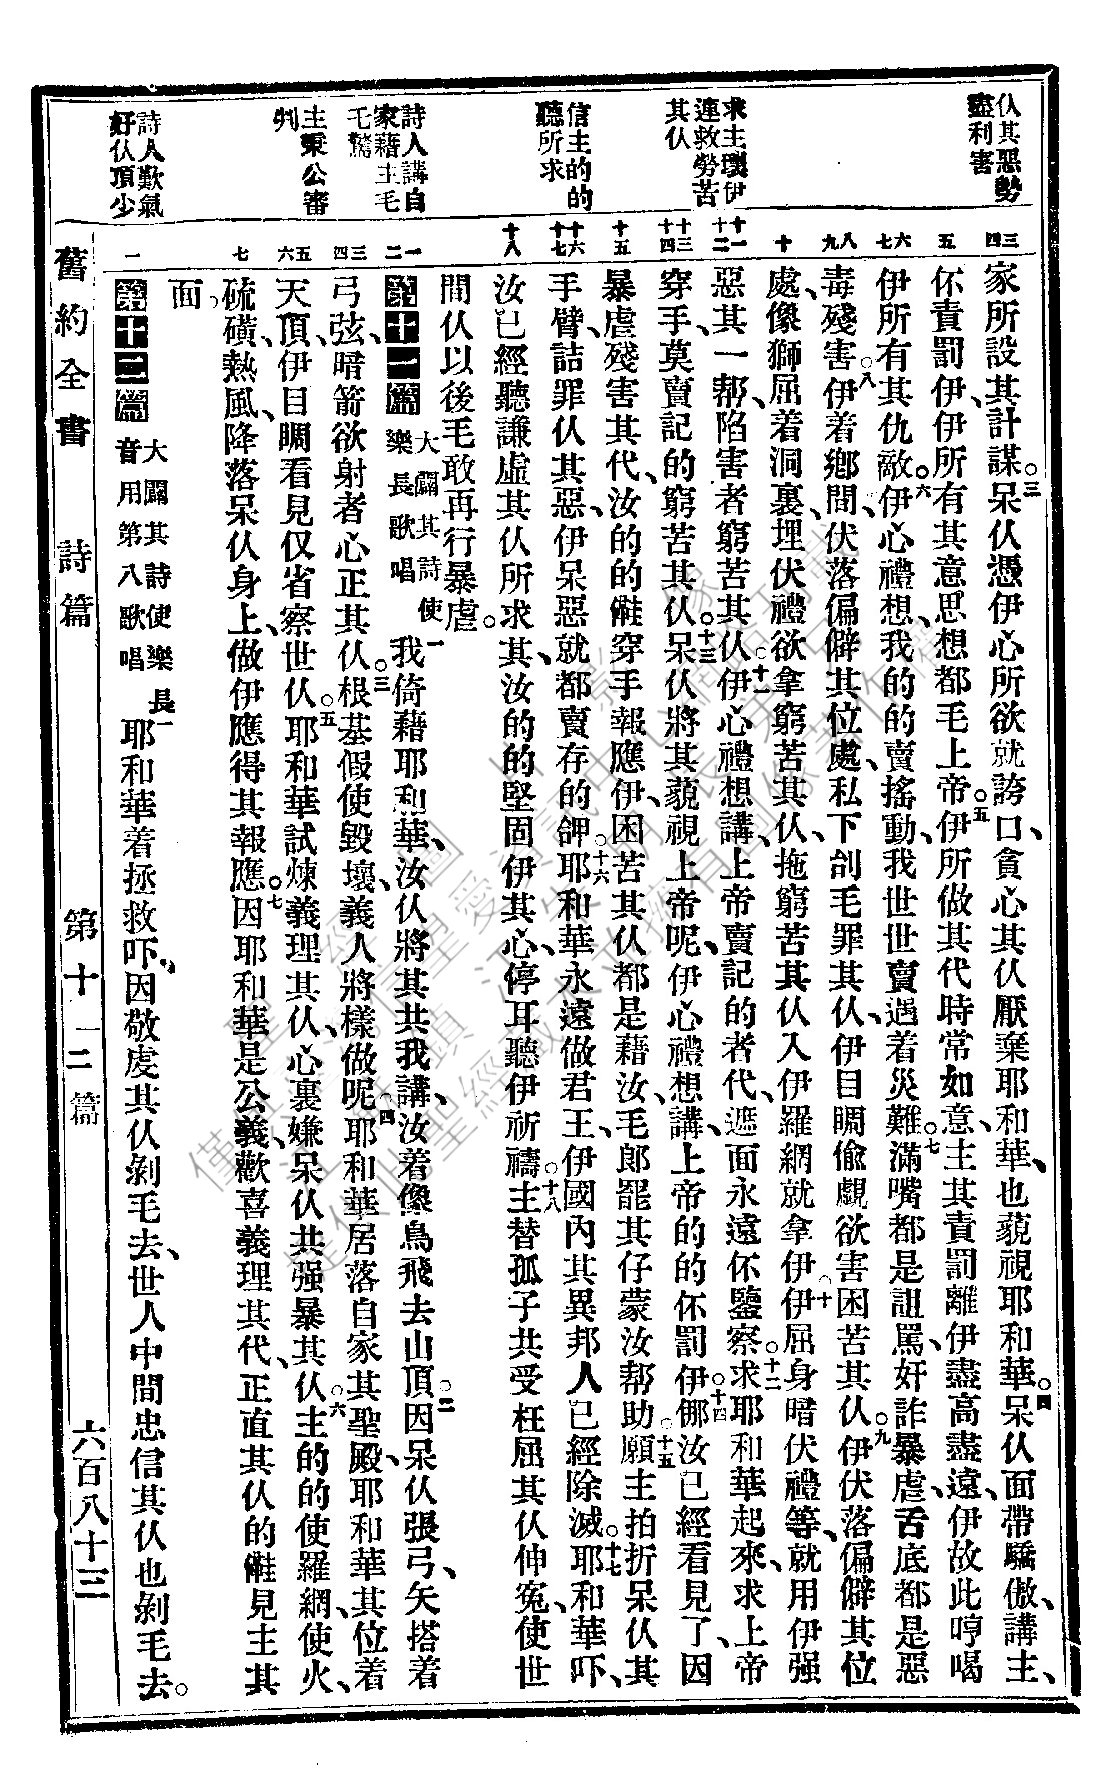 仸其惡勢
盡利害
求主攑伊
連救勞苦
其仸
信主的的
聽所求
詩人講自
家藉主毛
乇驚
主秉公審
判
詩人歎氣
好仸頂少
三
四
五
六
七
八
九
十
十一
十二
十三
十四
十五
十六
十七
十八
一
二
三
四
五
六
七
一
家所設其計謀。三呆仸憑伊心所欲就誇口、貪心其仸厭棄耶和華、也藐視耶和華。四呆仸面帶驕傲、講主、
伓責罰伊、伊所有其意思想都毛上帝。五伊所做其代時常如意、主其責罰離伊盡高盡遠、伊故此哼喝
伊所有其仇敵。六伊心禮想、我的的賣搖動、我世世賣遇着災難。七滿嘴都是詛罵奸詐暴虐、舌底都是惡
毒殘害。八伊着鄉間、伏落偏僻其位處、私下刣毛罪其仸、伊目睭偷覷欲害困苦其仸。九伊伏落偏僻其位
處、像獅屈着洞裏、埋伏禮欲拿窮苦其仸、拖窮苦其仸入伊羅網就拿伊。十伊屈身暗伏禮等、就用伊强
惡其一帮、陷害者窮苦其仸。十一伊心禮想講、上帝賣記的者代、遮面永遠伓鑒察。十二求耶和華起來、求上帝
穿手、莫賣記的窮苦其仸。十三呆仸將其藐視上帝呢、伊心禮想講、上帝的的伓罰伊。十四㑚汝已經看見了、因
暴虐殘害其代、汝的的㑽穿手報應伊、困苦其仸都是藉汝、毛郎罷其仔蒙汝帮助。十五願主拍折呆仸其
手臂、詰罪仸其惡、伊呆惡就都賣存的䶎。十六耶和華永遠做君王、伊國內其異邦人已經除滅。十七耶和華吓、
汝已經聽謙虛其仸所求其、汝的的堅固伊其心、停耳聽伊祈禱。十八主替孤子共受枉屈其仸伸冤、使世
間仸以後毛敢再行暴虐。
第十一篇 大闢其詩使樂長歌唱 一我倚藉耶和華、汝仸將其共我講、汝着像鳥飛去山頂。二因呆仸張弓、矢搭着
弓弦、暗箭欲射者心正其仸。三根基假使毀壞、義人將樣做呢。四耶和華居落自家其聖殿、耶和華其位着
天頂、伊目睭看見仅省察世仸。五耶和華試煉義理其仸、心裏嫌呆仸共强暴其仸。六主的的使羅網、使火、
硫磺、熱風、降落呆仸身上、做伊應得其報應。七因耶和華是公義、歡喜義理其代、正直其仸的㑽見主其
面。
第十二篇 大闢其詩使樂長音用第八歌唱 一耶和華着拯救吓、因敬虔其仸剝毛去、世人中間忠信其仸也剝毛去。
舊約全書 詩篇 第十一二篇 六百八十三